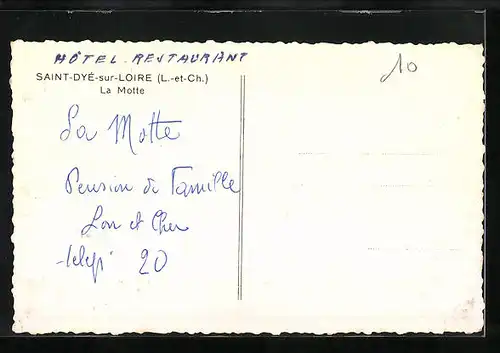 HÔTEL. RESTAURANT
SAINT-DYÉ-sur-LOIRE (L.-et-Ch.)
La Motte
10
La Motte
Pension de Famille
Loir et Cher
télép. 20